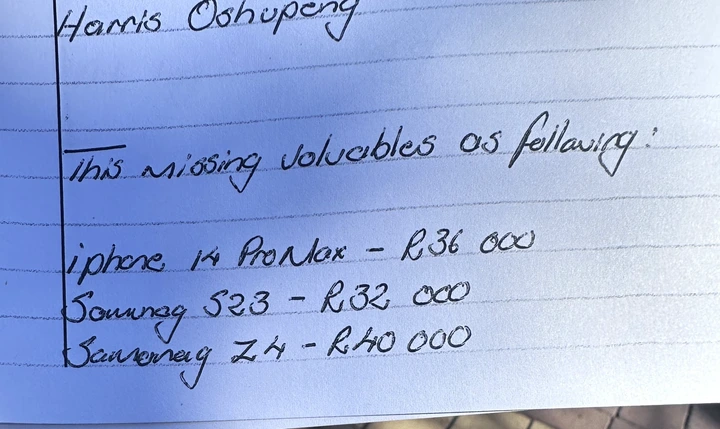 Harris Oshupeng
This missing Valuables as following:
iphone 14 Pro Max - R36 000
Samsung S23 - R32 000
Samsung Z4 - R40 000